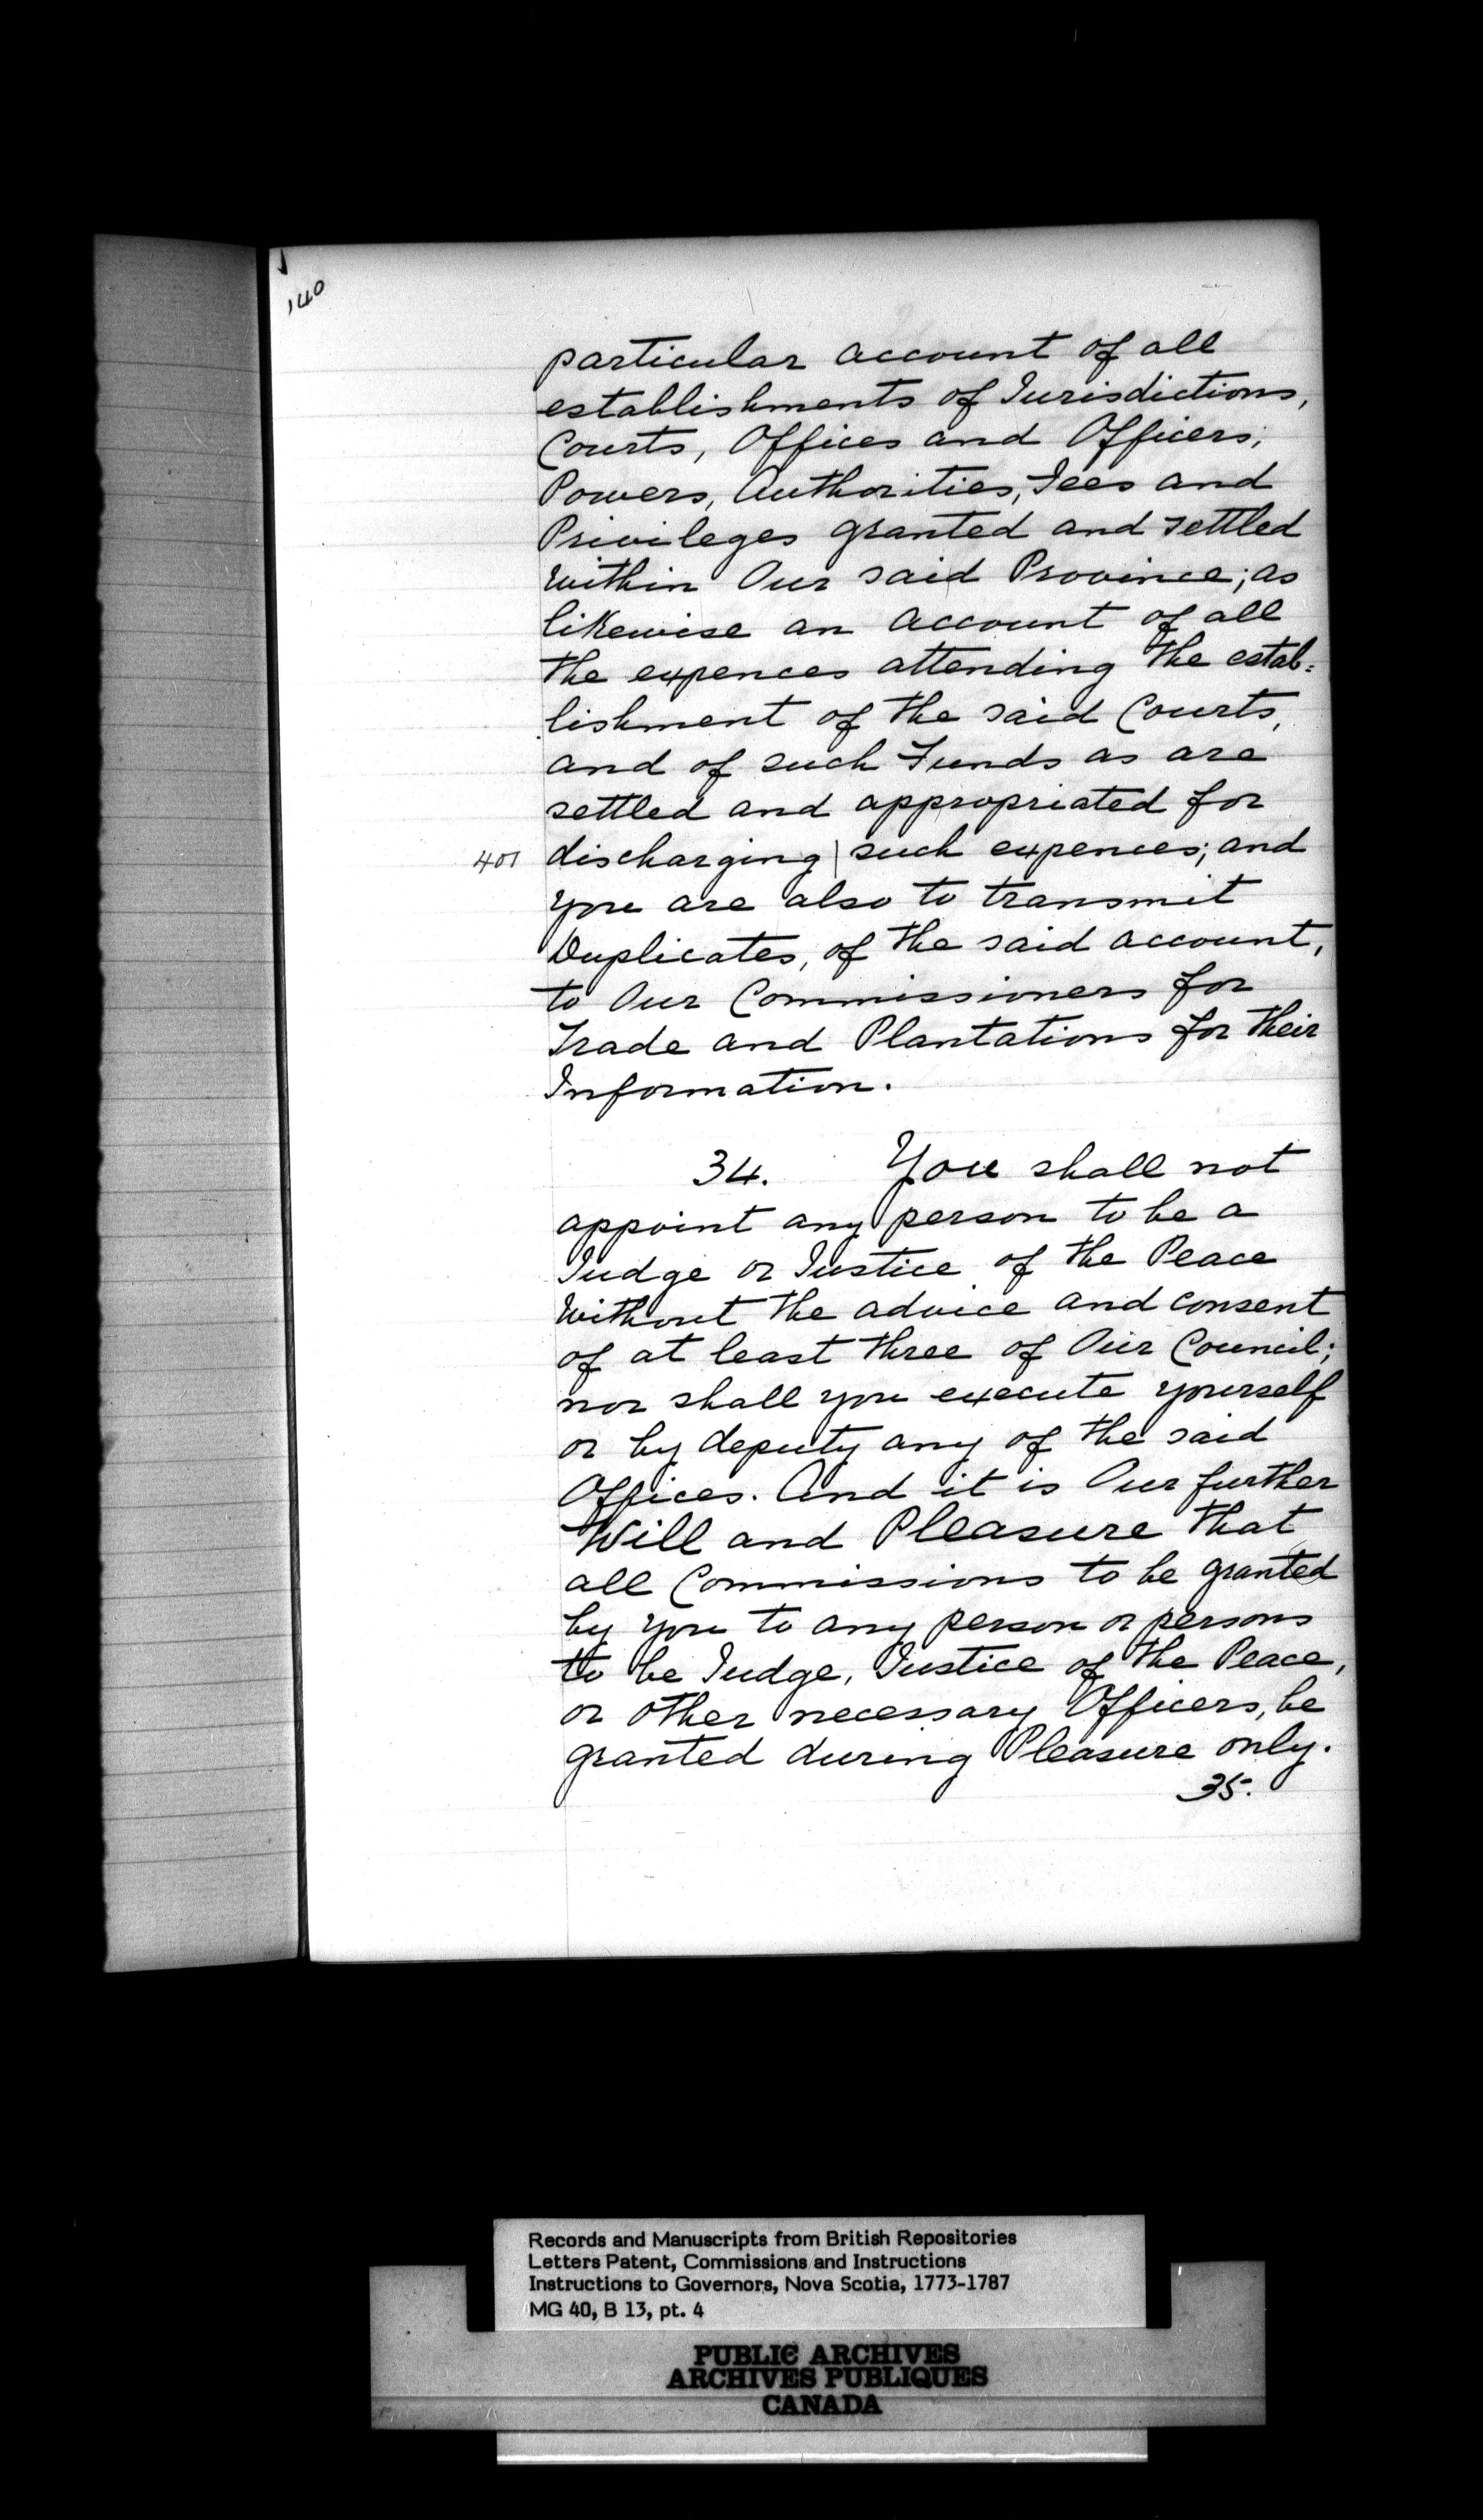 140
particular account of all
establishments of Jurisdictions,
Courts, Offices and Officers;
Powers, Authorities, Fees and
Privileges granted and settled
within Our said Province; as
likewise an account of all
the expences attending the estab=
lishment of the said Courts,
and of such Funds as are
settled and appropriated for
401 discharging | such expences; and
you are also to transmit
Duplicates, of the said account,
to Our Commissioners for
Trade and Plantations for their
Information.
34. You shall not
appoint any person to be a
Judge or Justice of the Peace
without the advice and consent
of at least three of Our Council;
nor shall you execute yourself
or by deputy any of the said
Offices. And it is Our further
Will and Pleasure that
all Commissions to be granted
by you to any person or persons
to be Judge, Justice of the Peace,
or other necessary Officers, be
granted during Pleasure only.
35.
Records and Manuscripts from British Repositories
Letters Patent, Commissions and Instructions
Instructions to Governors, Nova Scotia, 1773-1787
MG 40, B 13, pt. 4
PUBLIC ARCHIVES
ARCHIVES PUBLIQUES
CANADA